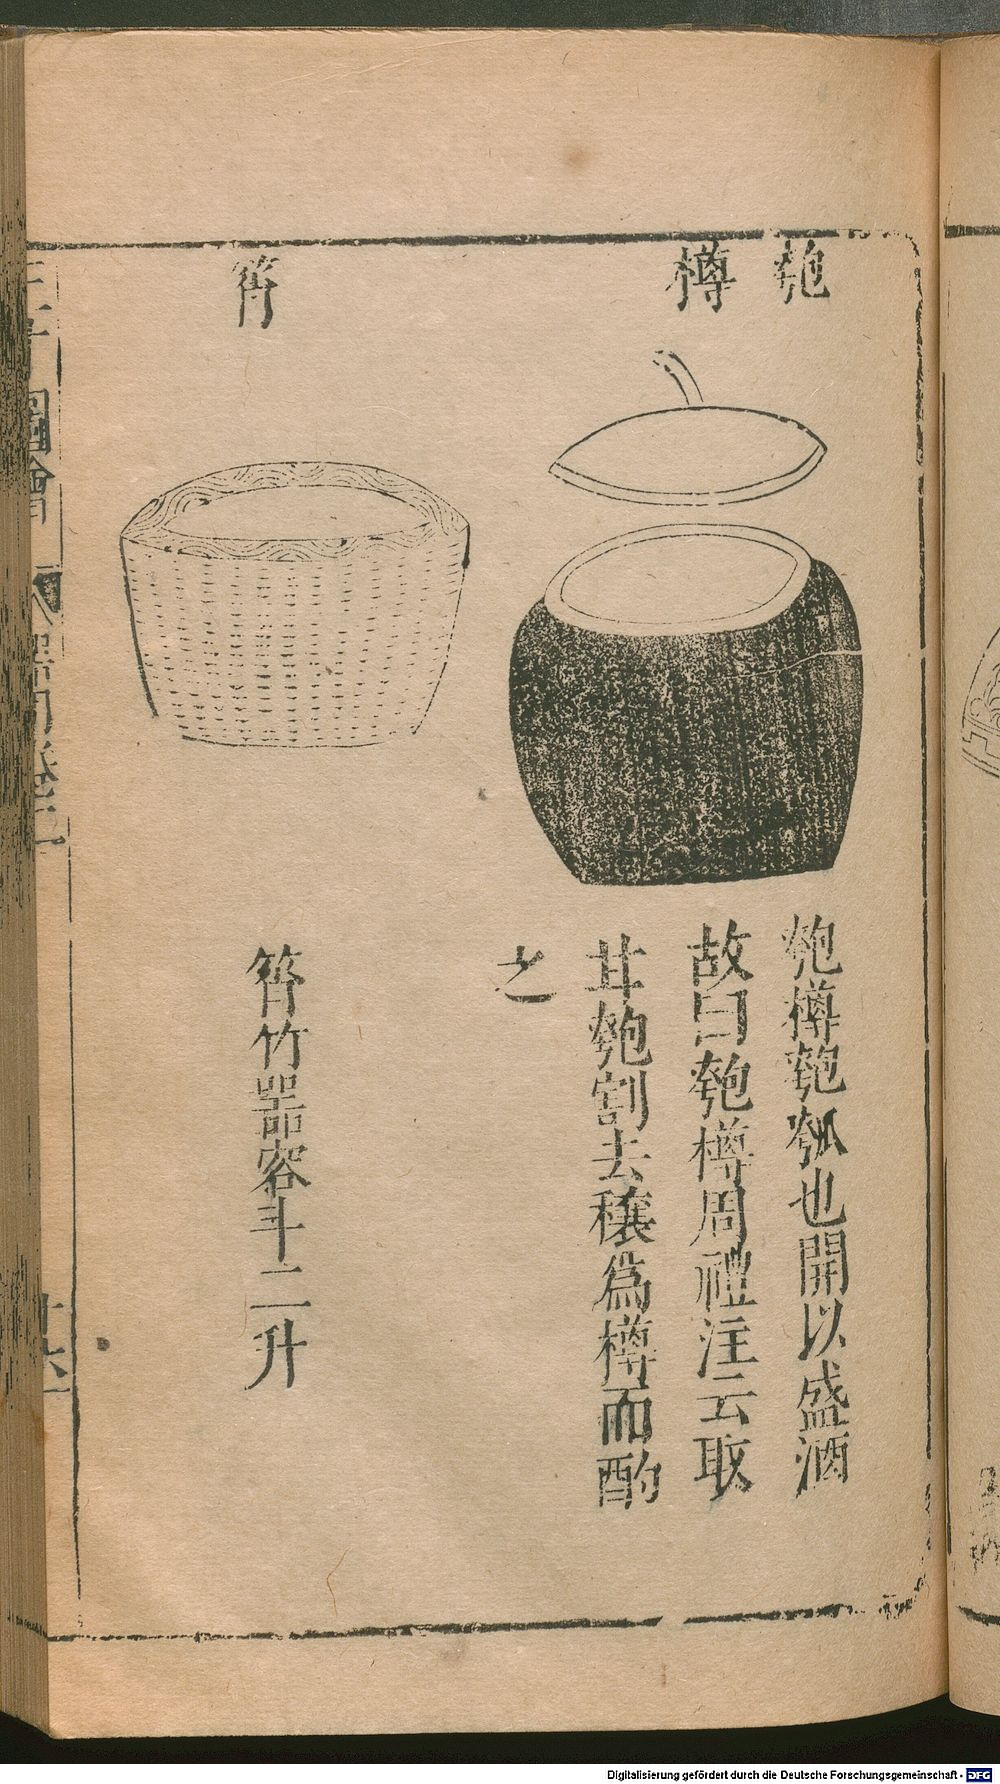 匏樽
匏樽匏瓠也開以盛酒
故曰匏樽周禮注云取
甘匏割去穰爲樽而酌
之
筲
筲竹器容斗二升
圖會
Digitalisierung gefördert durch die Deutsche Forschungsgemeinschaft - DFG